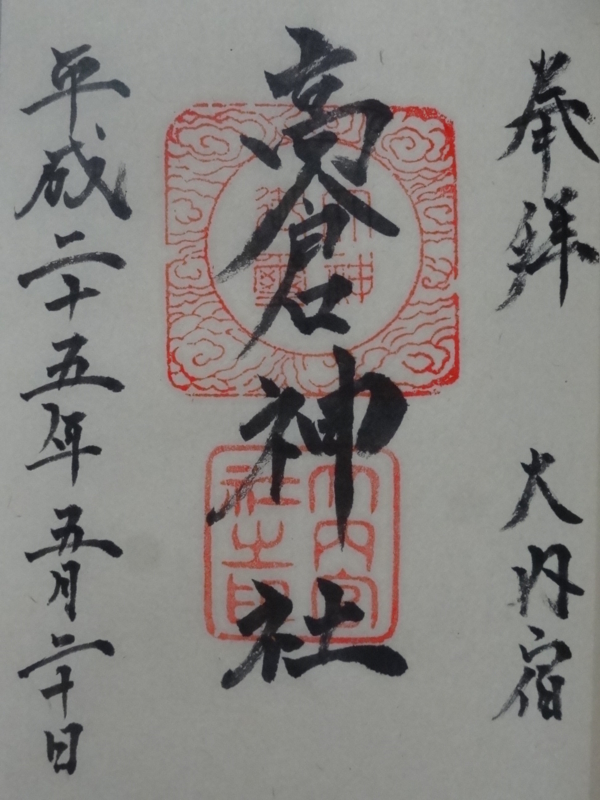 奉拝
大内宿
高倉神社
平成二十五年五月二十日